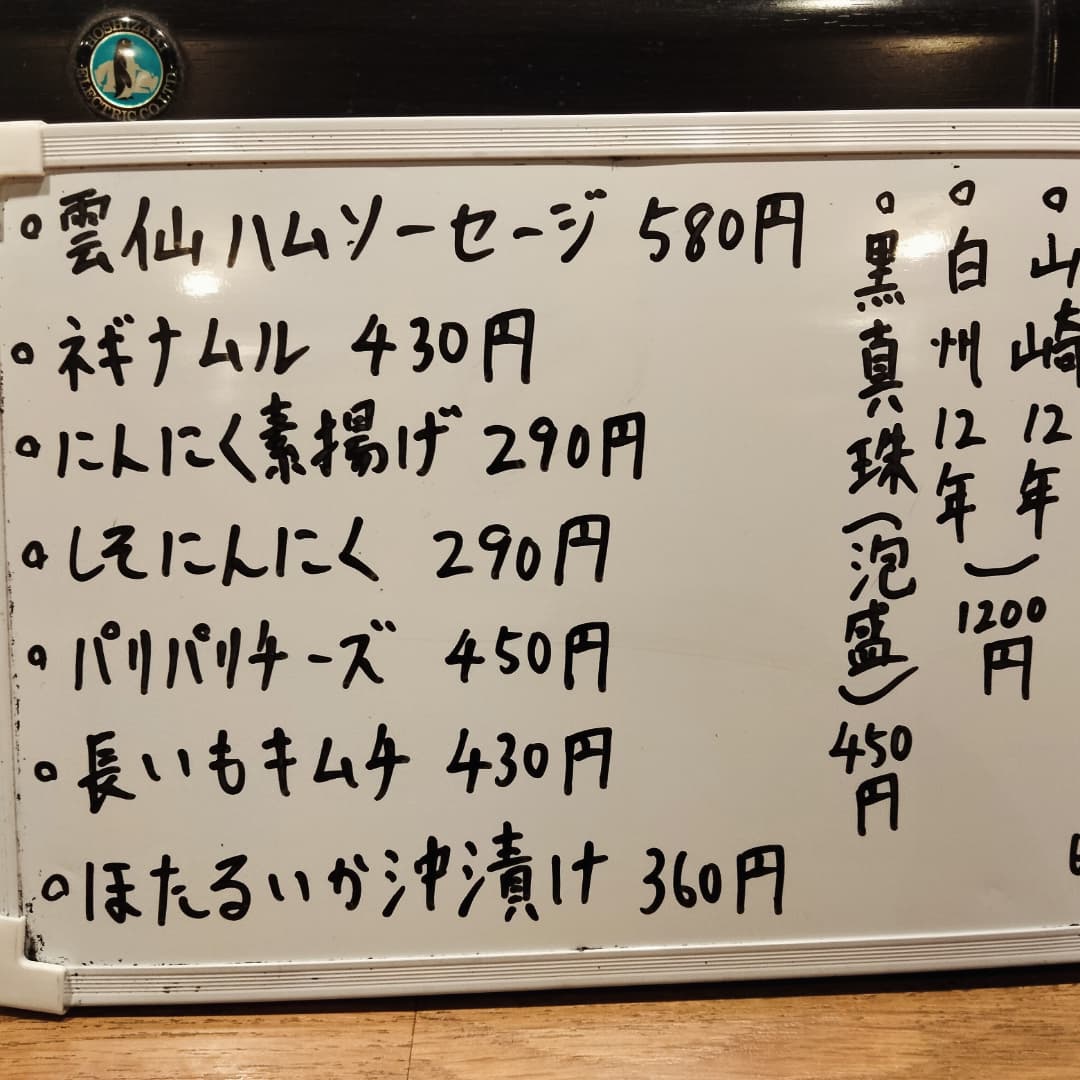 HOSHIZAKI
ELECTRIC CO.,LTD.
雲仙ハムソーセージ 580円
ネギナムル 430円
にんにく素揚げ 290円
しそにんにく 290円
パリパリチーズ 450円
長いもキムチ 430円
ほたるいか沖漬け 360円
山崎12年
白州12年
1200円
黒真珠(泡盛) 450円